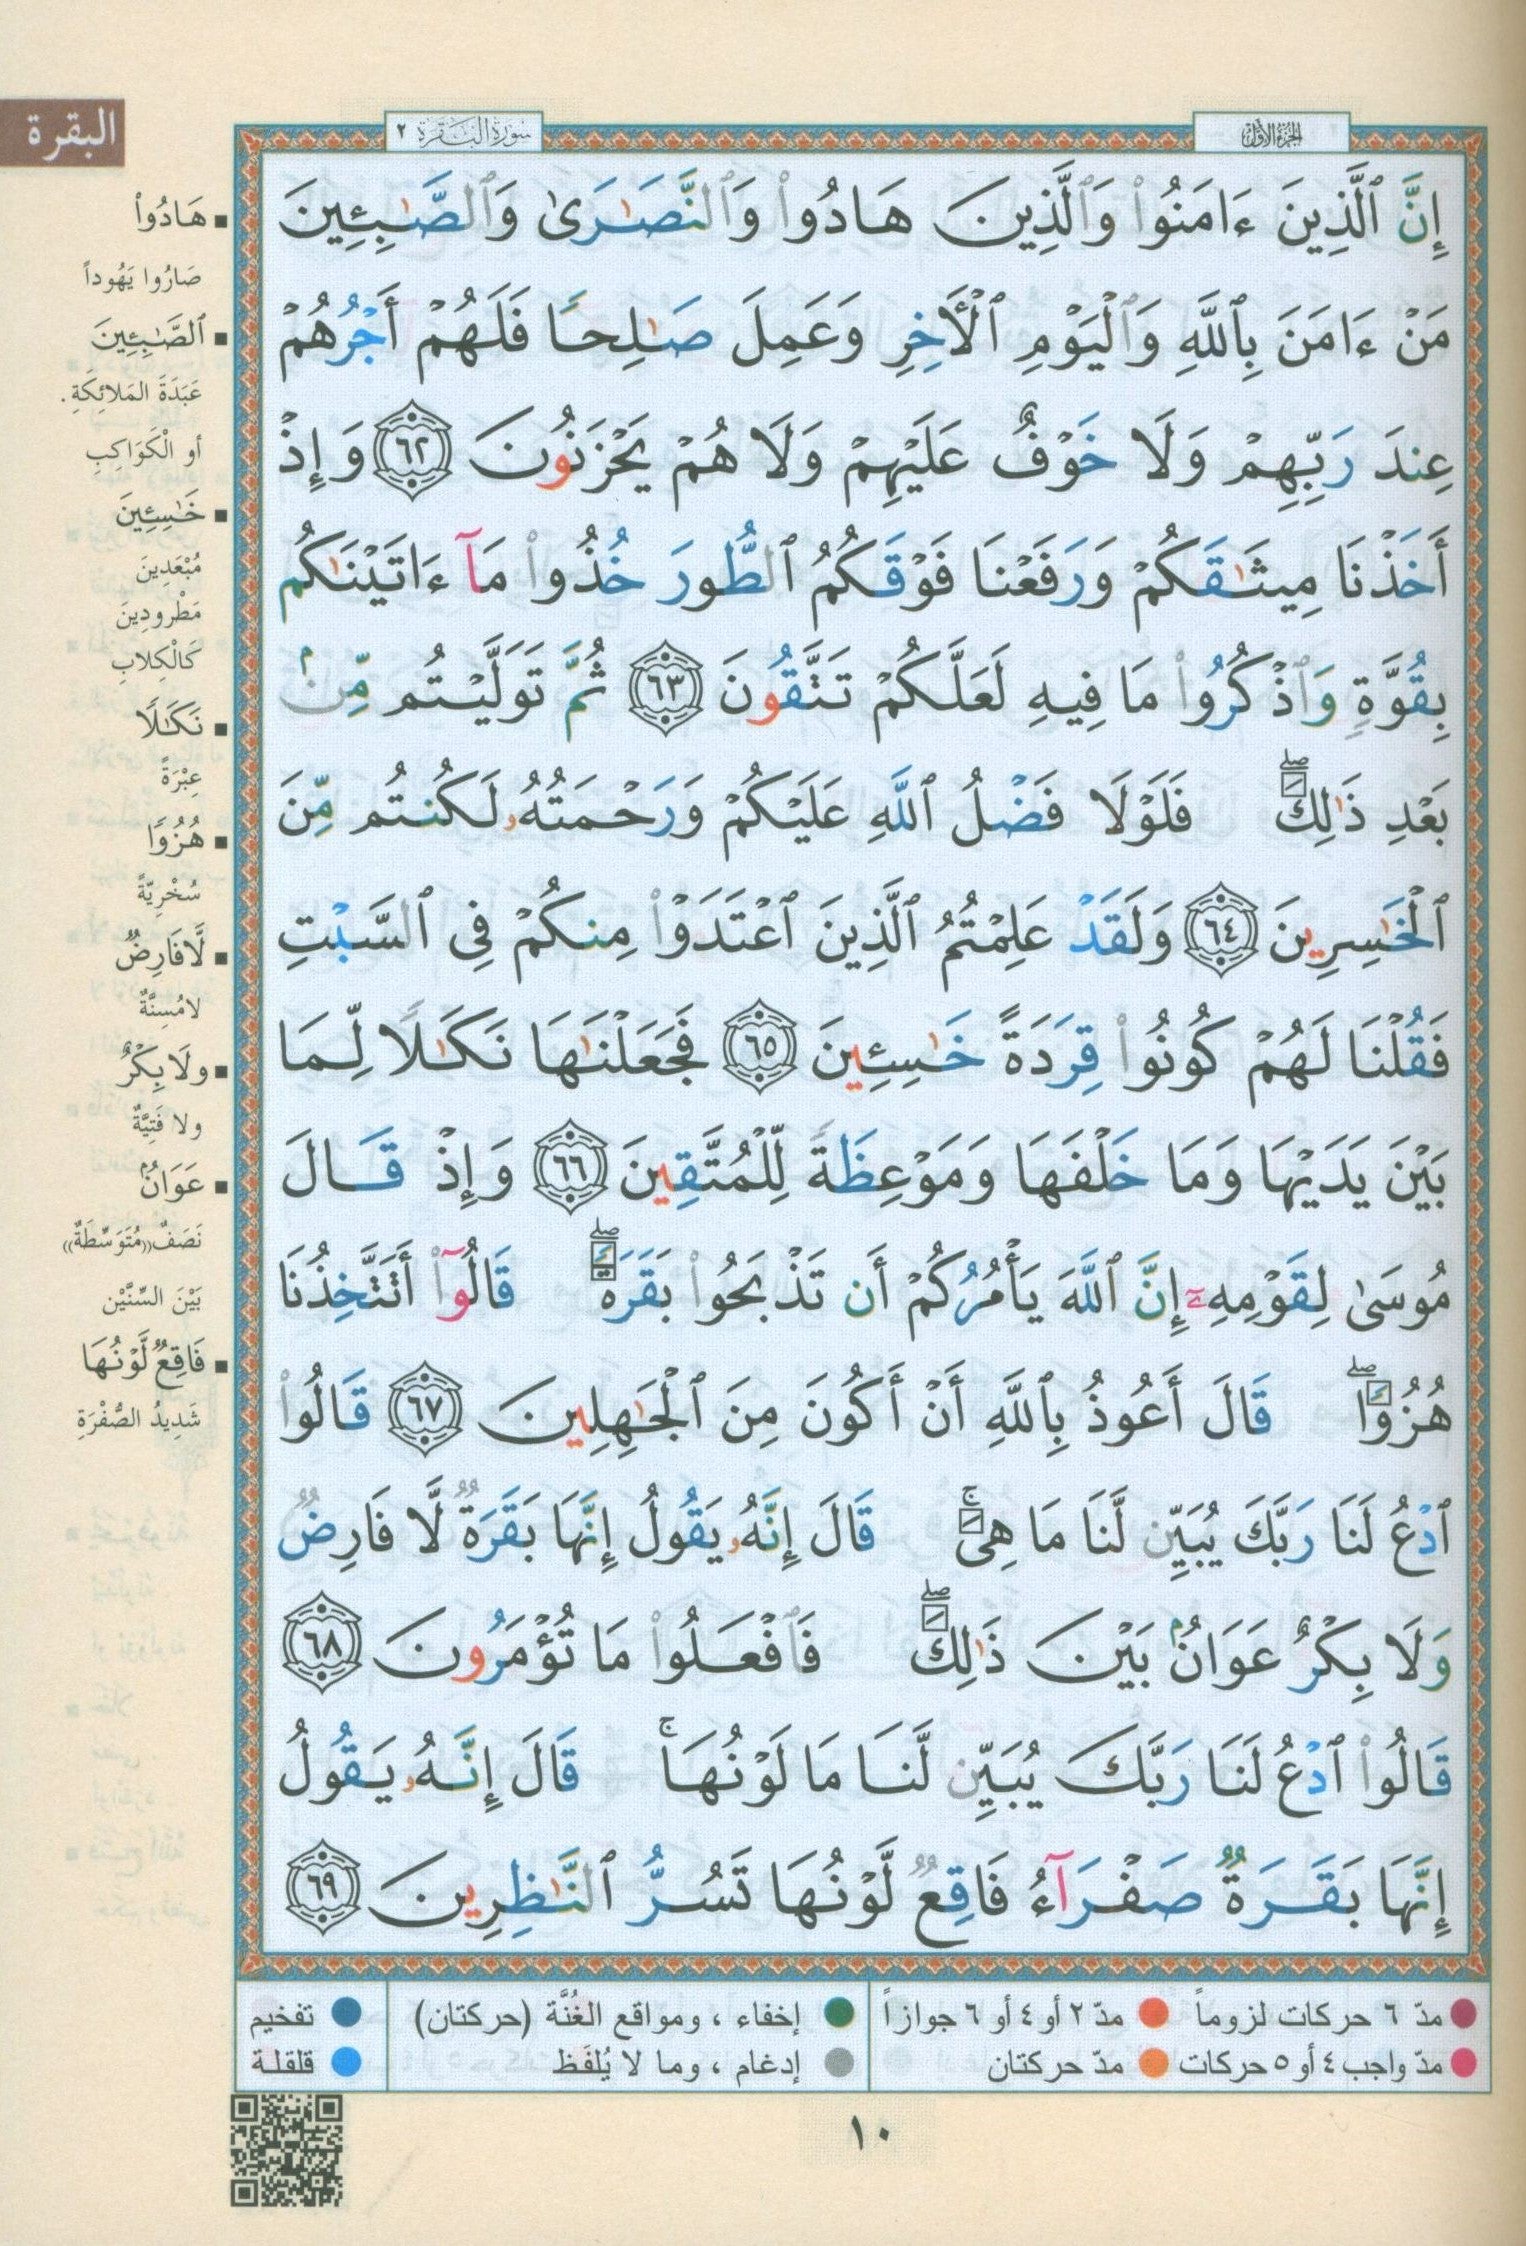 الجزء الأول
سورة البقرة ٢
البقرة
إِنَّ ٱلَّذِينَ ءَامَنُوا۟ وَٱلَّذِينَ هَادُوا۟ وَٱلنَّصَـٰرَىٰ وَٱلصَّـٰبِـِٔينَ
مَنْ ءَامَنَ بِٱللَّهِ وَٱلْيَوْمِ ٱلْـَٔاخِرِ وَعَمِلَ صَـٰلِحًا فَلَهُمْ أَجْرُهُمْ
عِندَ رَبِّهِمْ وَلَا خَوْفٌ عَلَيْهِمْ وَلَا هُمْ يَحْزَنُونَ ٦٢ وَإِذْ
أَخَذْنَا مِيثَـٰقَكُمْ وَرَفَعْنَا فَوْقَكُمُ ٱلطُّورَ خُذُوا۟ مَآ ءَاتَيْنَـٰكُم
بِقُوَّةٍ وَٱذْكُرُوا۟ مَا فِيهِ لَعَلَّكُمْ تَتَّقُونَ ٦٣ ثُمَّ تَوَلَّيْتُم مِّنۢ
بَعْدِ ذَٰلِكَ ۖ فَلَوْلَا فَضْلُ ٱللَّهِ عَلَيْكُمْ وَرَحْمَتُهُۥ لَكُنتُم مِّنَ
ٱلْخَـٰسِرِينَ ٦٤ وَلَقَدْ عَلِمْتُمُ ٱلَّذِينَ ٱعْتَدَوْا۟ مِنكُمْ فِى ٱلسَّبْتِ
فَقُلْنَا لَهُمْ كُونُوا۟ قِرَدَةً خَـٰسِـِٔينَ ٦٥ فَجَعَلْنَـٰهَا نَكَـٰلًا لِّمَا
بَيْنَ يَدَيْهَا وَمَا خَلْفَهَا وَمَوْعِظَةً لِّلْمُتَّقِينَ ٦٦ وَإِذْ قَالَ
مُوسَىٰ لِقَوْمِهِۦٓ إِنَّ ٱللَّهَ يَأْمُرُكُمْ أَن تَذْبَحُوا۟ بَقَرَةً ۖ قَالُوٓا۟ أَتَتَّخِذُنَا
هُزُوًا ۖ قَالَ أَعُوذُ بِٱللَّهِ أَنْ أَكُونَ مِنَ ٱلْجَـٰهِلِينَ ٦٧ قَالُوا۟
ٱدْعُ لَنَا رَبَّكَ يُبَيِّن لَّنَا مَا هِىَ ۚ قَالَ إِنَّهُۥ يَقُولُ إِنَّهَا بَقَرَةٌ لَّا فَارِضٌ
وَلَا بِكْرٌ عَوَانٌۢ بَيْنَ ذَٰلِكَ ۖ فَٱفْعَلُوا۟ مَا تُؤْمَرُونَ ٦٨
قَالُوا۟ ٱدْعُ لَنَا رَبَّكَ يُبَيِّن لَّنَا مَا لَوْنُهَا ۚ قَالَ إِنَّهُۥ يَقُولُ
إِنَّهَا بَقَرَةٌ صَفْرَآءُ فَاقِعٌ لَّوْنُهَا تَسُرُّ ٱلنَّـٰظِرِينَ ٦٩
هَادُوا۟
صَارُوا يَهُوداً
ٱلصَّـٰبِـِٔينَ
عَبَدَةَ المَلائِكَةِ.
أو الْكَوَاكِبِ
خَـٰسِـِٔينَ
مُبْعَدِينَ
مَطْرودِينَ
كَالْكِلابِ
نَكَـٰلًا
عِبْرَةً
هُزُوًا
سُخْرِيّةً
لَّا فَارِضٌ
لا مُسِنَّةٌ
ولَا بِكْرٌ
ولا فَتِيَّةٌ
عَوَانٌۢ
نَصَفٌ ((مُتَوَسِّطَةٌ))
بَيْنَ السِّنَّيْن
فَاقِعٌ لَّوْنُهَا
شَدِيدُ الصُّفْرَةِ
مدّ ٦ حركات لزوماً مدّ ٢ أو ٤ أو ٦ جوازاً إخفاء ، ومواقع الغُنَّة (حركتان) تفخيم
مدّ واجب ٤ أو ٥ حركات مدّ حركتان إدغام ، وما لا يُلفَظ قلقلة
١٠